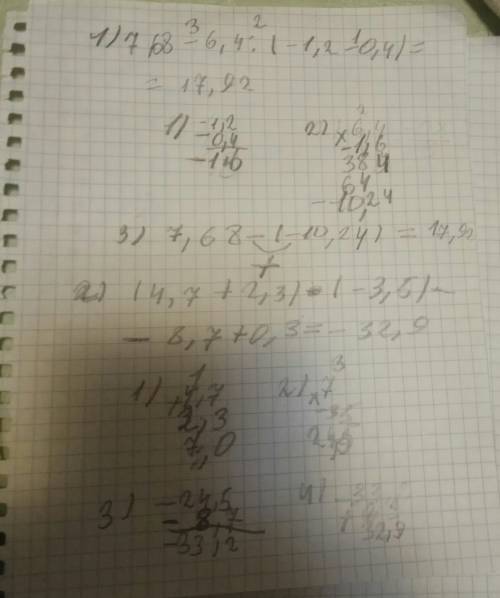 1) 7,68 - 6,4 : (-1,2 - 0,4) =
= 17,92
1) -1,2
- 0,4
-1,6
2) 6,4
× -1,6
384
64
-10,24
3) 7,68 - (-10,24) = 17,92
+
2) (4,7 + 2,3) · (-3,5) -
- 8,7 + 0,3 = - 32,9
1) 4,7
+ 2,3
7,0
2) 7
× -3,5
24,5
3) -24,5
- 8,7
-33,2
4)
32,9